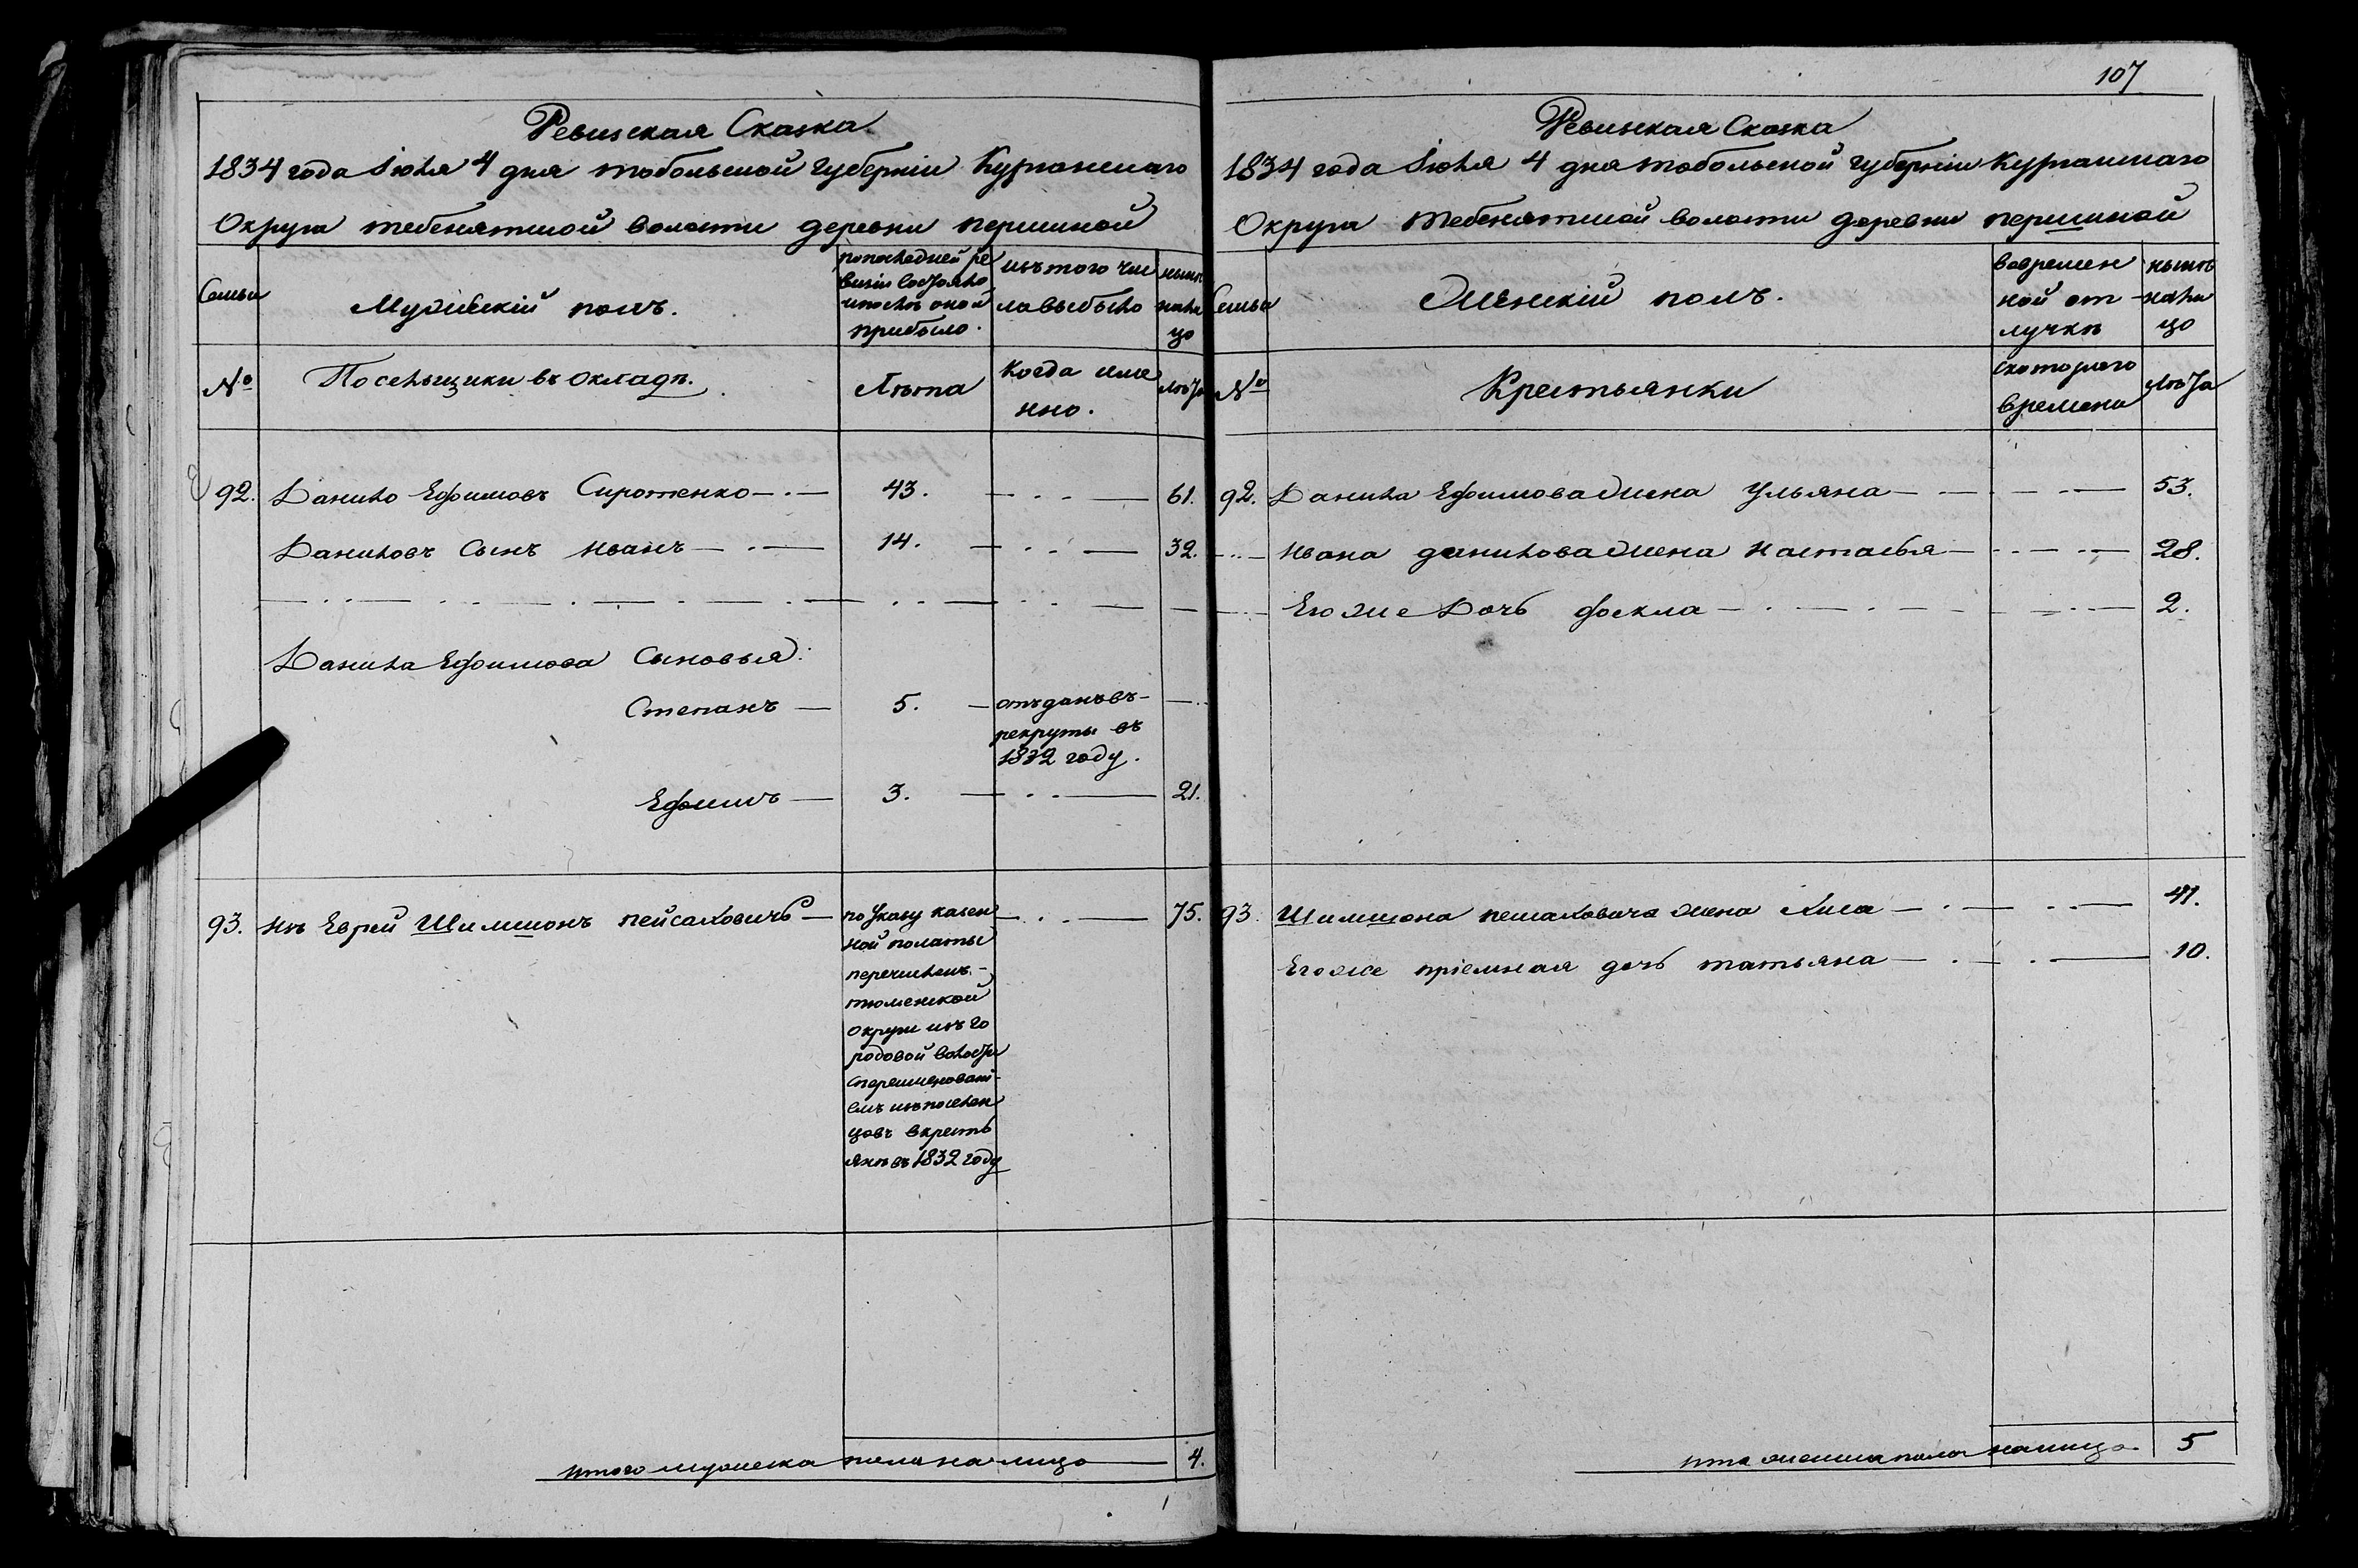 Ревизская Сказка.
1834 года Іюля 4 дня тобольской губерніи Курганскаго
Округа тебенятской волости деревни першиной
Семьи
Мужескій полъ.
попоследней ре
визіи состояло
ипослѣ оной
прибыло.
изъ того чис
лавыбыло
нынѣ
нали
цо
№
Поселыцики въ окладѣ.
Лѣта
Когда име
нно.
лѣта
92. Данило Ефимовъ Сиротенко — 43. — 61.
Даниловъ Сынъ Иванъ — 14. — 32.
Данила Ефимова Сыновья:
Степанъ — 5. — отъданъ въ —
рекруты въ
1832 году.
Ефимъ — 3. — 21.
93. Изъ Еврей Шимшонъ пейсаховичъ — по Указу казен — 75.
ной полаты
перечисленъ
тюменской
округи изъ го
родовой волости
спереименовані-
емъ изъпоселен
цовъ вкресть
янѣ въ 1832 году
итого мужеска пола налицо — 4.
107
Ревизская Сказка
1834 года Іюля 4 дня тобольской губерніи Курганскаго
Округа тебенятской волости деревни першиной
Семьи
Женскій полъ.
вовремен
ной от
лучкѣ
нынѣ
нали
цо
№
Крестьянки
скотораго
времени
лѣта
92. Данила Ефимова жена Ульяна — 53.
Ивана данилова жена настасья — 28.
Его же Дочь фекла — 2.
93. Шимшона пешаховича жена Хиса — 41.
Егоже пріемная дочь татьяна — 10.
ито женска пола налицо. 5